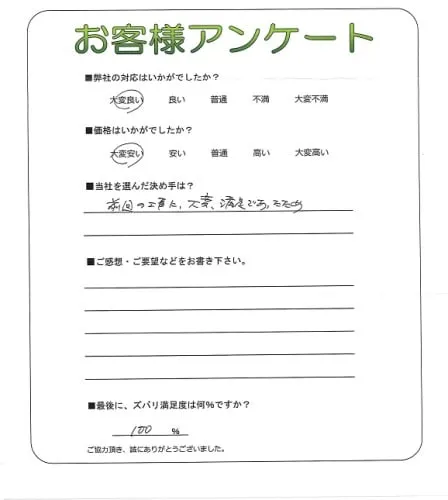 お客様アンケート
■弊社の対応はいかがでしたか？
大変良い 良い 普通 不満 大変不満
■価格はいかがでしたか？
大変安い 安い 普通 高い 大変高い
■当社を選んだ決め手は？
前回の工事た、大変、満足であったため
■ご感想・ご要望などをお書き下さい。
■最後に、ズバリ満足度は何%ですか？
100 %
ご協力頂き、誠にありがとうございました。